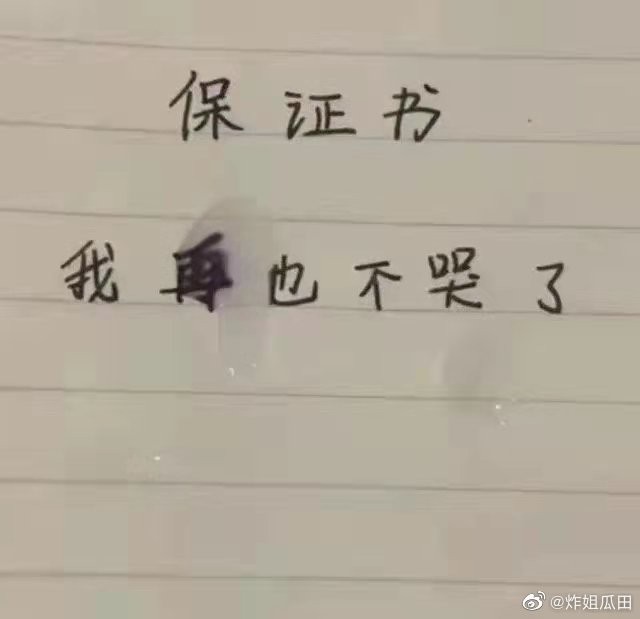 保证书
我再也不哭了
@炸姐瓜田